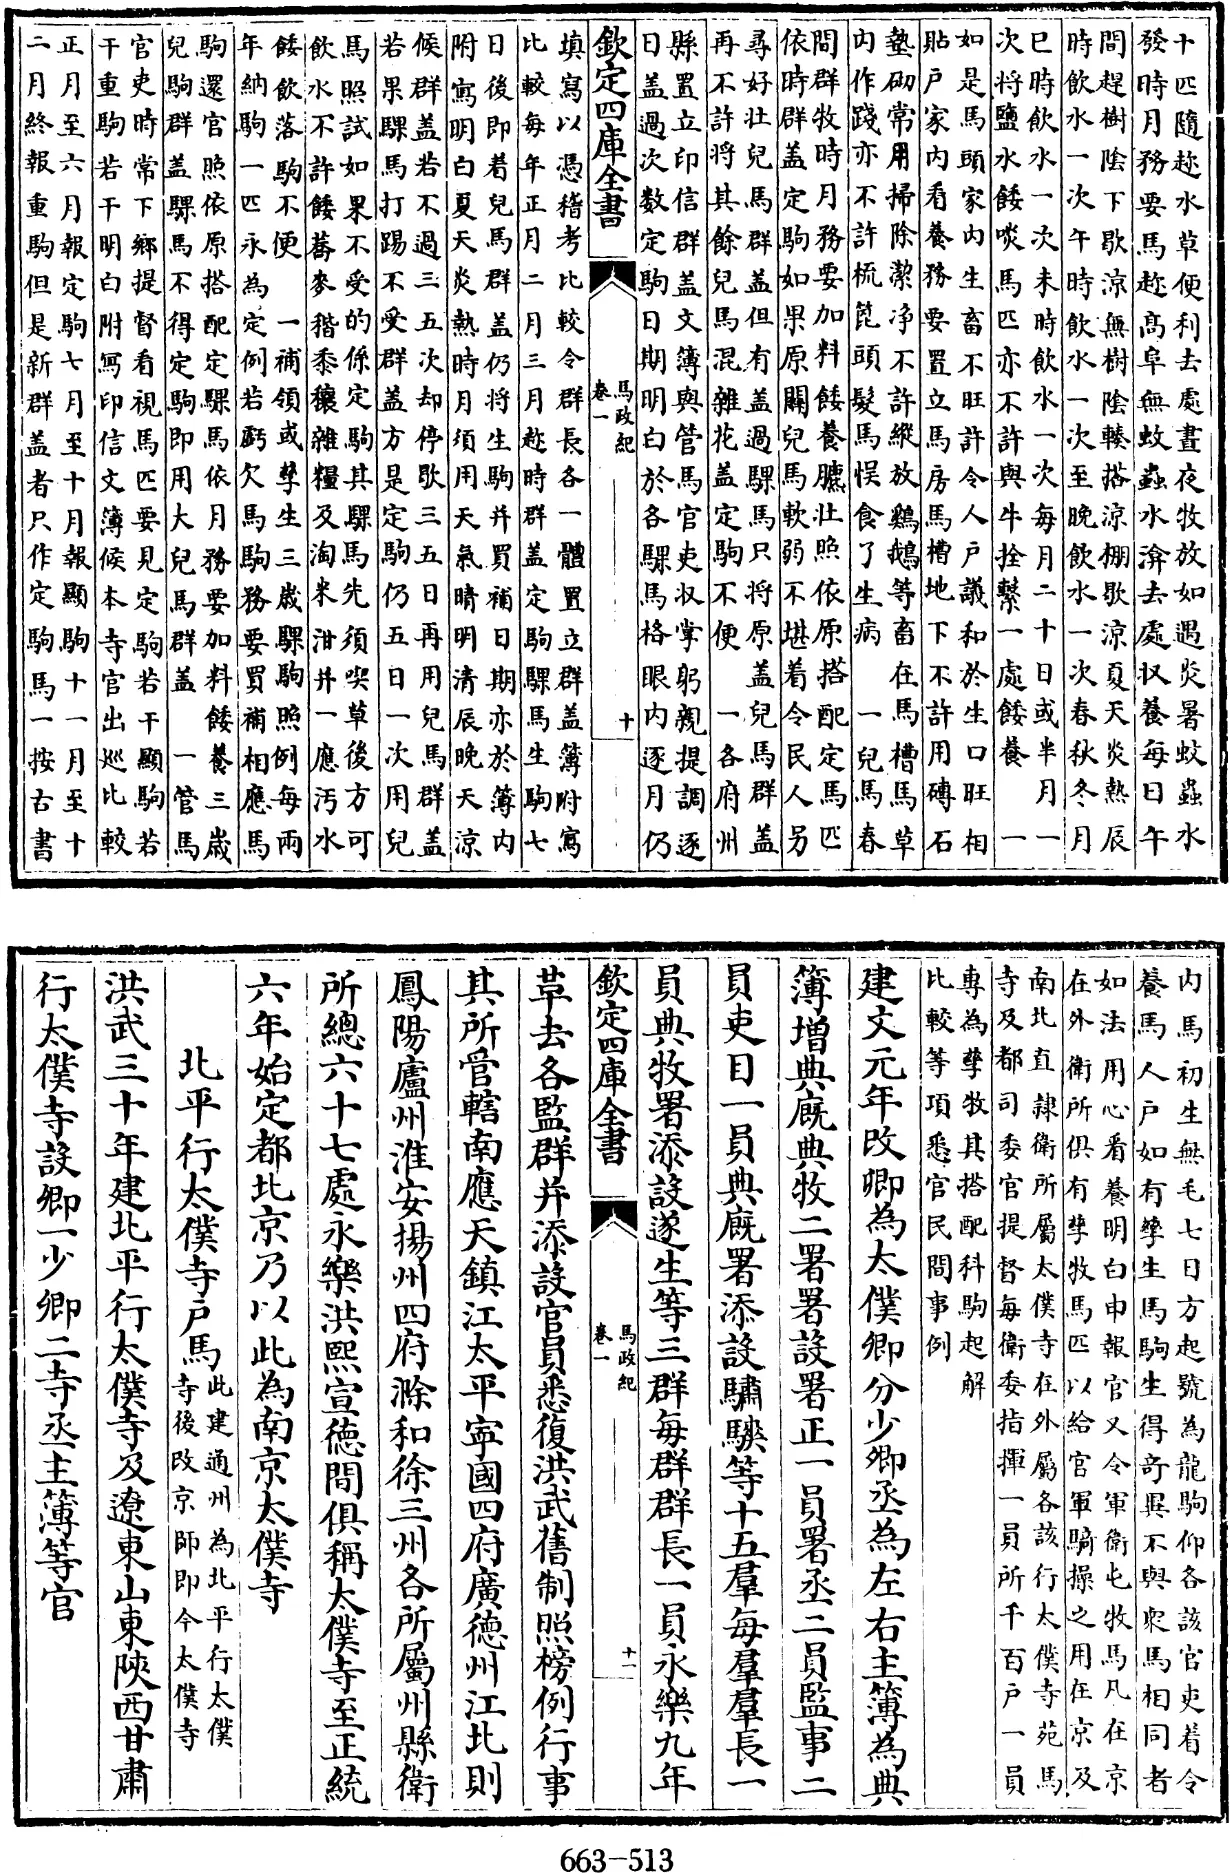 十匹隨趂水草便利去處晝夜牧放如遇炎暑蚊蟲水
發時月務要馬趂高阜無蚊蟲水渰去處收養每日午
間趕樹陰下歇涼無樹陰轃搭涼棚歇涼夏天炎熱辰
時飲水一次午時飲水一次至晚飲水一次春秋冬月
巳時飲水一次未時飲水一次每月二十日或半月一
次將鹽水餧啖馬匹亦不許與牛拴繫一處餧養　一
如是馬頭家内生畜不旺許令人戶議和於生口旺相
貼戶家内看養務要置立馬房馬槽地下不許用磚石
墊砌常用掃除潔淨不許縱放鷄鵝等畜在馬槽馬草
内作踐亦不許梳箆頭髮馬悮食了生病　一兒馬春
間群牧時月務要加料餧養臕壯照依原搭配定馬匹
依時群蓋定駒如果原關兒馬軟弱不堪着令民人另
尋好壯兒馬群蓋但有蓋過騍馬只將原蓋兒馬群蓋
再不許將其餘兒馬混雜花蓋定駒不便　一各府州
縣置立印信群蓋文簿與管馬官吏収掌躬親提調逐
日蓋過次数定駒日期明白於各騍馬格眼内逐月仍
欽定四庫全書
馬政紀
卷一
十
填寫以憑稽考比較令群長各一體置立群蓋簿附寫
比較每年正月二月三月趂時群蓋定駒騍馬生駒七
日後即着兒馬群蓋仍將生駒并買補日期亦於簿内
附寫明白夏天炎熱時月須用天氣晴明清辰晚天涼
候群蓋若不過三五次却停歇三五日再用兒馬群蓋
若果騍馬打踢不受群蓋方是定駒仍五日一次用兒
馬照試如果不受的係定駒其騍馬先須喫草後方可
飲水不許餧蕎麥稭黍穰雜糧及淘米泔并一應汚水
餧飲落駒不便　一補領或孳生三歲騍駒照例每兩
年納駒一匹永為定例若虧欠馬駒務要買補相應馬
駒還官照依原搭配定騍馬依月務要加料餧養三歲
兒駒群蓋騍馬不得定駒即用大兒馬群蓋　一管馬
官吏時常下鄉提督看視馬匹要見定駒若干顯駒若
干重駒若干明白附寫印信文簿候本寺官出巡比較
正月至六月報定駒七月至十月報顯駒十一月至十
二月終報重駒但是新群蓋者只作定駒馬一按古書
内馬初生無毛七日方起號為龍駒仰各該官吏着令
養馬人戶如有孳生馬駒生得奇異不與衆馬相同者
如法用心看養明白申報官又令軍衛屯牧馬凡在京
在外衛所俱有孳牧馬匹以給官軍騎操之用在京及
南北直隸衛所屬太僕寺在外屬各該行太僕寺苑馬
寺及都司委官提督每衛委指揮一員所千百戶一員
專為孳牧其搭配科駒起解
比較等項悉官民間事例
建文元年改卿為太僕卿分少卿丞為左右主簿為典
簿增典廐典牧二署署設署正一員署丞二員監事二
員吏目一員典廐署添設驌騻等十五羣每羣羣長一
員典牧署添設遂生等三群每群群長一員永樂九年
欽定四庫全書
馬政紀
卷一
十一
草去各監群并添設官員悉復洪武舊制照榜例行事
其所管轄南應天鎮江太平寧國四府廣德州江北則
鳳陽廬州淮安揚州四府滁和徐三州各所屬州縣衛
所總六十七處永樂洪熙宣德間俱稱太僕寺至正統
六年始定都北京乃以此為南京太僕寺
北平行太僕寺戶馬
此建通州為北平行太僕
寺後改京師即今太僕寺
洪武三十年建北平行太僕寺及遼東山東陝西甘肅
行太僕寺設卿一少卿二寺丞主簿等官
663-513